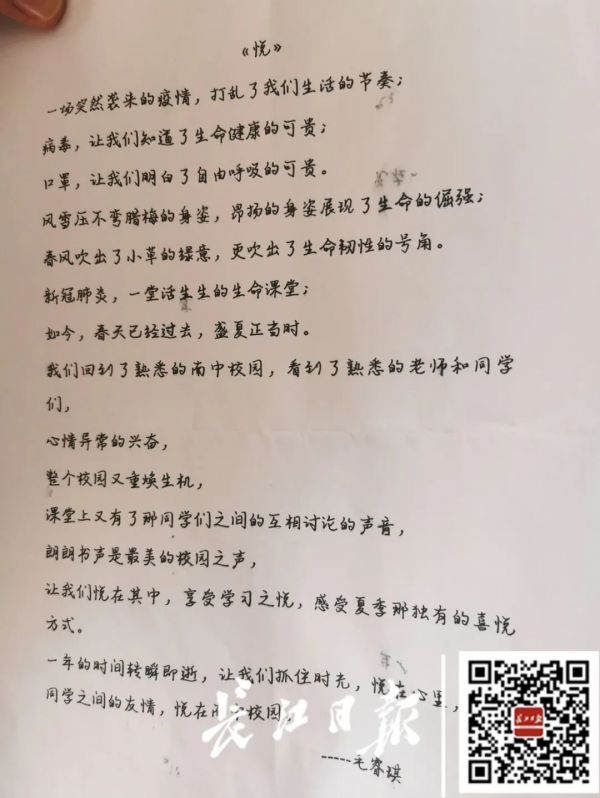 《悦》
一场突然袭来的疫情，打乱了我们生活的节奏；
病毒，让我们知道了生命健康的可贵；
口罩，让我们明白了自由呼吸的可贵。
风雪压不弯腊梅的身姿，昂扬的身姿展现了生命的倔强；
春风吹出了小草的绿意，更吹出了生命韧性的号角。
新冠肺炎，一堂活生生的生命课堂；
如今，春天已经过去，盛夏正当时。
我们回到了熟悉的南中校园，看到了熟悉的老师和同学
们，
心情异常的兴奋，
整个校园又重焕生机，
课堂上又有了那同学们之间的互相讨论的声音，
朗朗书声是最美的校园之声，
让我们悦在其中，享受学习之悦，感受夏季那独有的喜悦
方式。
一年的时间转瞬即逝，让我们抓住时光，悦在心里，
同学之间的友情，悦在 中校园，
-----毛睿琪
长江日报
长江日报